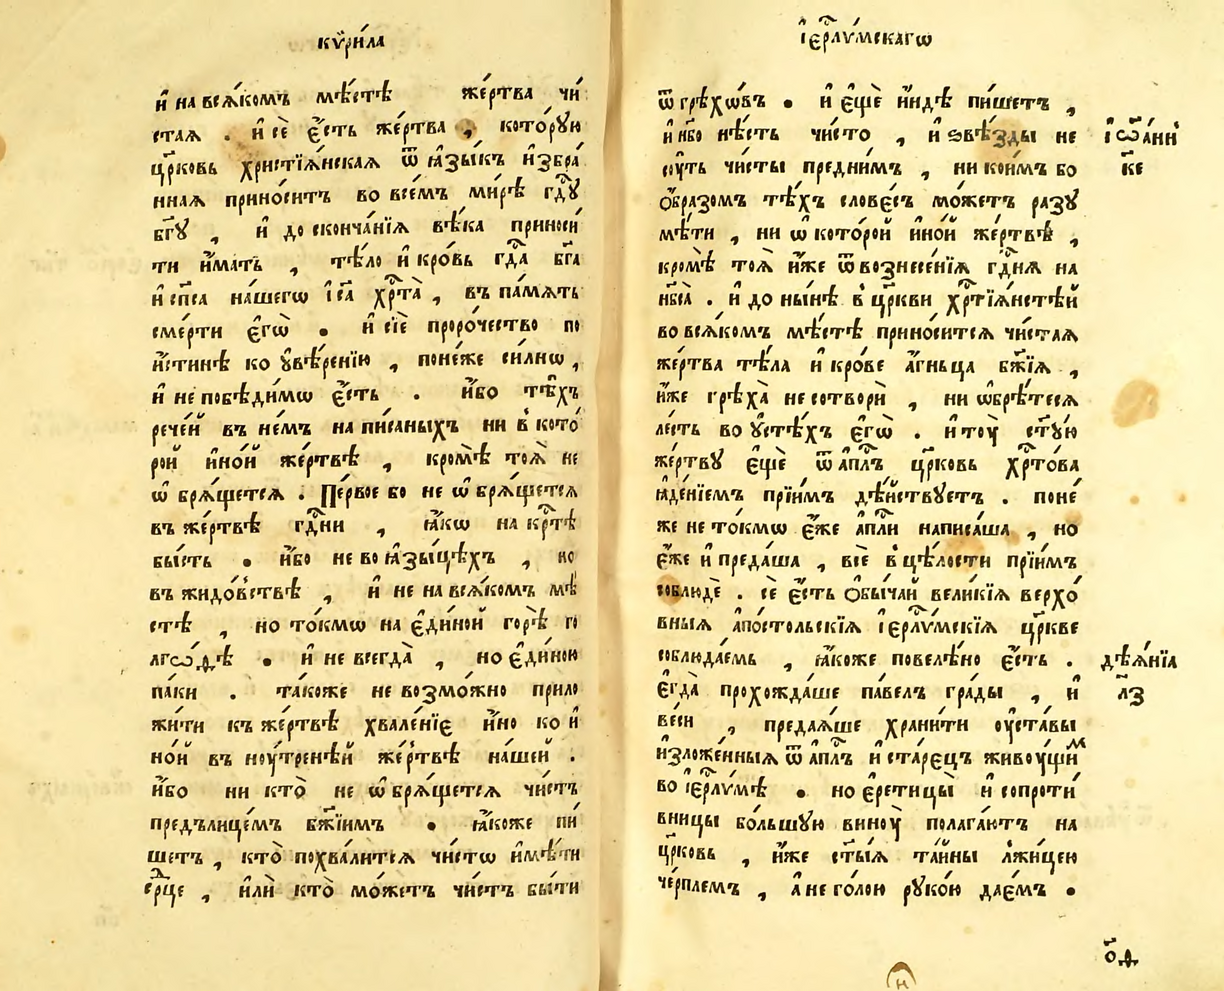 кѷри́ла
и҆ на всѧ́комъ мѣ́стѣ же́ртва чи́
стаѧ . и҆ сѐ є҆́сть же́ртва , кото́рꙋю
цр҃ковь христїѧ́нскаѧ ѿ ꙗ҆зы́къ и҆збра́
ннаѧ прино́ситъ во все́мъ ми́рѣ гдⷭ҇ꙋ
бг҃ꙋ , и҆ до сконча́нїѧ вѣ́ка приноси́
ти и҆́мать , тѣ́ло и҆ кро́вь гдⷭ҇а бг҃а
и҆ сп҃са на́шегѡ і҆с҃а хрⷭ҇та̀ , въ па́мѧть
сме́рти є҆гѡ̀ • и҆ сїѐ проро́чество по
и҆́стинѣ ко ᲂу҆вѣ́ренїю , поне́же си́лнѡ ,
и҆ не побѣди́мѡ є҆́сть . и҆́бо тѣ́хъ
рече́й въ не́мъ напи́саныхъ ни в̾ кото́
рой и҆но́й же́ртвѣ , кро́мѣ тоѧ̀ не
ѡ҆брѧ́щетсѧ . Пе́рвое бо не ѡ҆брѧ́щетсѧ
въ же́ртвѣ гдⷭ҇ни , ꙗ҆́кѡ на крⷭ҇тѣ
бы́сть • и҆́бо не во ꙗ҆зы́цѣхъ , но
въ жидо́вствѣ , и҆ не на всѧ́комъ мѣ́
стѣ , но то́кмѡ на є҆ди́ной горѣ̀ го
лгѡ́ѳѣ • и҆ не всегда̀ , но є҆ди́ною
па́ки . та́коже не возмо́жно прило
жи́ти къ же́ртвѣ хвале́нїє и҆́но ко и҆
но́й въ нꙋ́тренѣй же́ртвѣ на́шей .
и҆́бо ни кто̀ не ѡ҆брѧ́щетсѧ чи́стъ
предъ лице́мъ бж҃їимъ • ꙗ҆́коже пи́
шетъ , кто̀ похва́литсѧ чи́стѡ и҆мѣ́ти
срⷣце , и҆лѝ кто̀ мо́жетъ чи́стъ бы́ти
і҆ерⷭ҇лѵ́мскагѡ
ѿ грѣхѡ́въ • и҆ є҆щѐ и҆́ндѣ пи́шетъ ,
и҆ нб҃о нѣ́сть чи́сто , и҆ ѕвѣ́зды не
сꙋ́ть чи́сты пред̾ни́мъ , ни кои́мъ бо
ѻ҆́бразомъ тѣ́хъ слове́съ мо́жетъ разꙋ
мѣ́ти , ни ѡ҆ кото́рой и҆но́й же́ртвѣ ,
кромѣ̀ тоѧ̀ и҆́же ѿ вознесе́нїѧ гдⷭ҇нѧ на
нб҃са̀ . и҆ до ны́нѣ в̾ цр҃кви хрⷭ҇тїѧ́нстѣй
во всѧ́комъ мѣ́стѣ прино́ситсѧ чи́стаѧ
же́ртва тѣ́ла и҆ кро́ве а҆́гньца бж҃їѧ ,
и҆́же грѣха̀ не сотворѝ , ни ѡ҆брѣ́тесѧ
ле́сть во ᲂу҆стѣ́хъ є҆гѡ̀ . и҆ тꙋ̀ ст҃ꙋю
же́ртвꙋ є҆щѐ ѿ а҆пⷭ҇лъ цр҃ковь хрⷭ҇то́ва
ꙗ҆де́нїемъ прїи́мъ дѣ́йствꙋетъ . поне́
же не то́кмѡ є҆́же а҆пⷭ҇ли написа́ша , но
є҆́же и҆ преда́ша , всѐ в̾ цѣ́лости прїи́мъ
соблюдѐ . сѐ є҆́сть ѻ҆бы́чай вели́кїѧ верхо́
вныѧ а҆по́стольскїѧ і҆ерⷭ҇лѵ́мскїѧ цр҃кве
соблюда́емь , ꙗ҆́коже повелѣ́но є҆́сть .
є҆гда̀ прохожда́ше па́велъ гра́ды , и҆
ве́си , предаѧ́ше храни́ти ᲂу҆ста́вы
и҆зложе́нныѧ ѿ а҆пⷭ҇лъ и҆ ста́рєцъ живꙋ́щиⷨ
во і҆ерⷭ҇лѵ́мѣ • но є҆ретицы̀ и҆ сопроти́
вницы бо́льшꙋю винꙋ̀ полага́ютъ на
цр҃ковь , и҆́же ст҃ы́ѧ та́йны лжи́цею
че́рплемъ , а҆ не го́лою рꙋко́ю дае́мъ •
і҆ѡ҃анн
к҃е
дѣѧ́нїа
л҃з
ѻ҃д
н